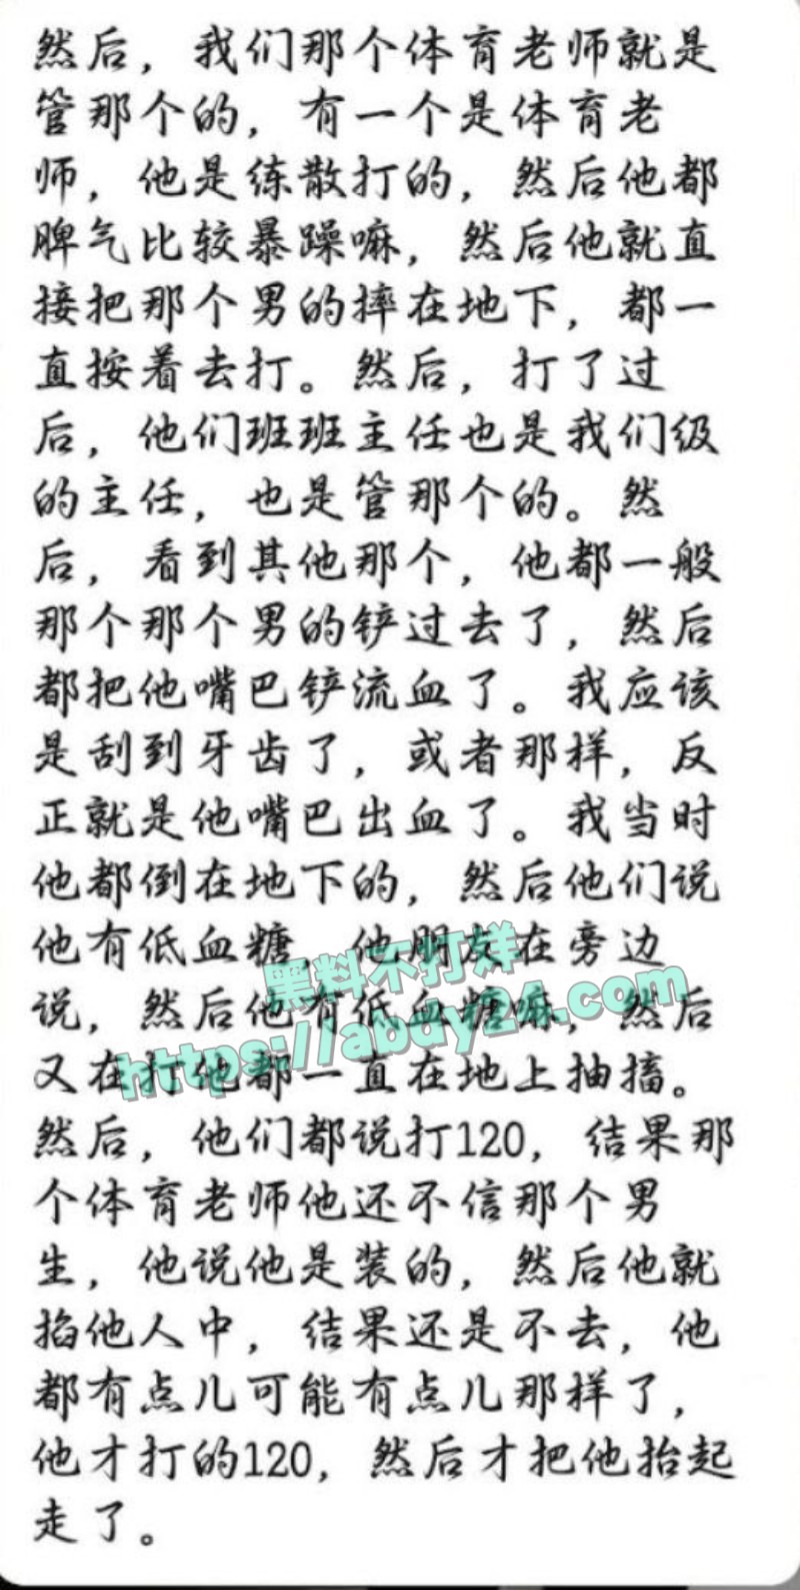 然后，我们那个体育老师就是
管那个的，有一个是体育老
师，他是练散打的，然后他都
脾气比较暴躁嘛，然后他就直
接把那个男的摔在地下，都一
直按着去打。然后，打了过
后，他们班班主任也是我们级
的主任，也是管那个的。然
后，看到其他那个，他都一般
那个那个男的铲过去了，然后
都把他嘴巴铲流血了。我应该
是刮到牙齿了，或者那样，反
正就是他嘴巴出血了。我当时
他都倒在地下的，然后他们说
他有低血糖，他朋友在旁边
说，然后他有低血糖嘛，然后
又在打他都一直在地上抽搐。
然后，他们都说打120，结果那
个体育老师他还不信那个男
生，他说他是装的，然后他就
掐他人中，结果还是不去，他
都有点儿可能有点儿那样了，
他才打的120，然后才把他抬起
走了。
黑料不打烊
https://abdy24.com